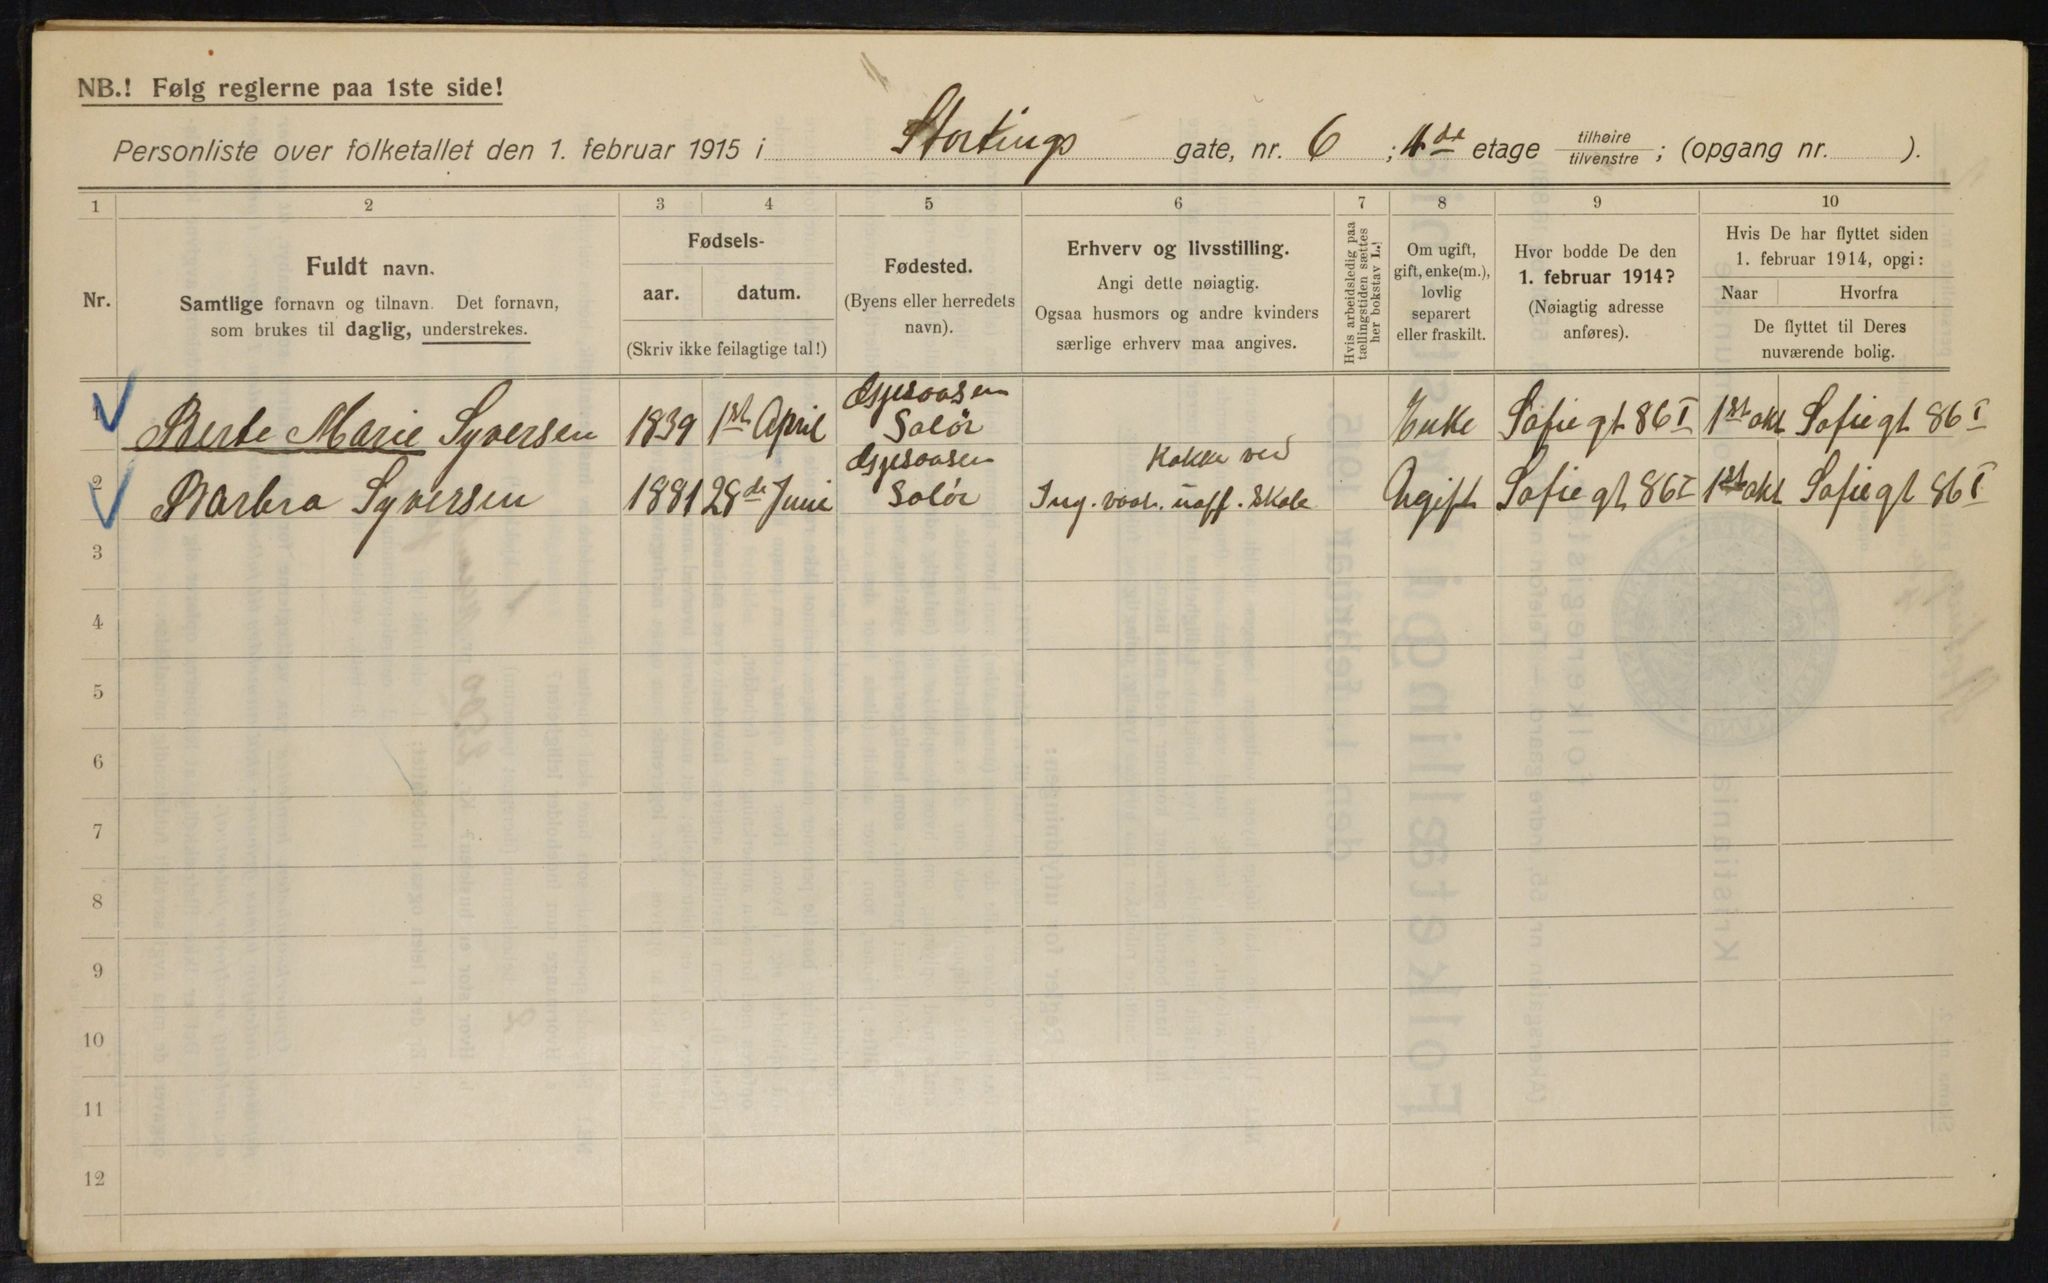 NB.! Følg reglerne paa 1ste side!
Personliste over folketallet den 1. februar 1915 i Stortings gate, nr. 6 ; 4de etage tilhøire / tilvenstre ; (opgang nr. ).
1 2 3 4 5 6 7 8 9 10
Nr.
Fuldt navn.
Samtlige fornavn og tilnavn. Det fornavn,
som brukes til daglig, understrekes.
Fødsels-
aar. datum.
(Skriv ikke feilagtige tal!)
Fødested.
(Byens eller herredets
navn).
Erhverv og livsstilling.
Angi dette nøiagtig.
Ogsaa husmors og andre kvinders
særlige erhverv maa angives.
Hvis arbeidsledig paa
tællingstiden sættes
her bokstav L.!
Om ugift,
gift, enke(m.),
lovlig
separert
eller fraskilt.
Hvor bodde De den
1. februar 1914?
(Nøiagtig adresse
anføres).
Hvis De har flyttet siden
1. februar 1914, opgi:
Naar Hvorfra
De flyttet til Deres
nuværende bolig.
1 Berte Marie Syversen 1839 1st April Solør Enke Sofiegt 86 I 1st okt Sofiegt 86 I
Kokke ved
2 Barbra Syversen 1881 28de Juni Solør Ing. uoff. Skole Ugift Sofiegt 86 I 1st okt Sofiegt 86 I
3
4
5
6
7
8
9
10
11
12